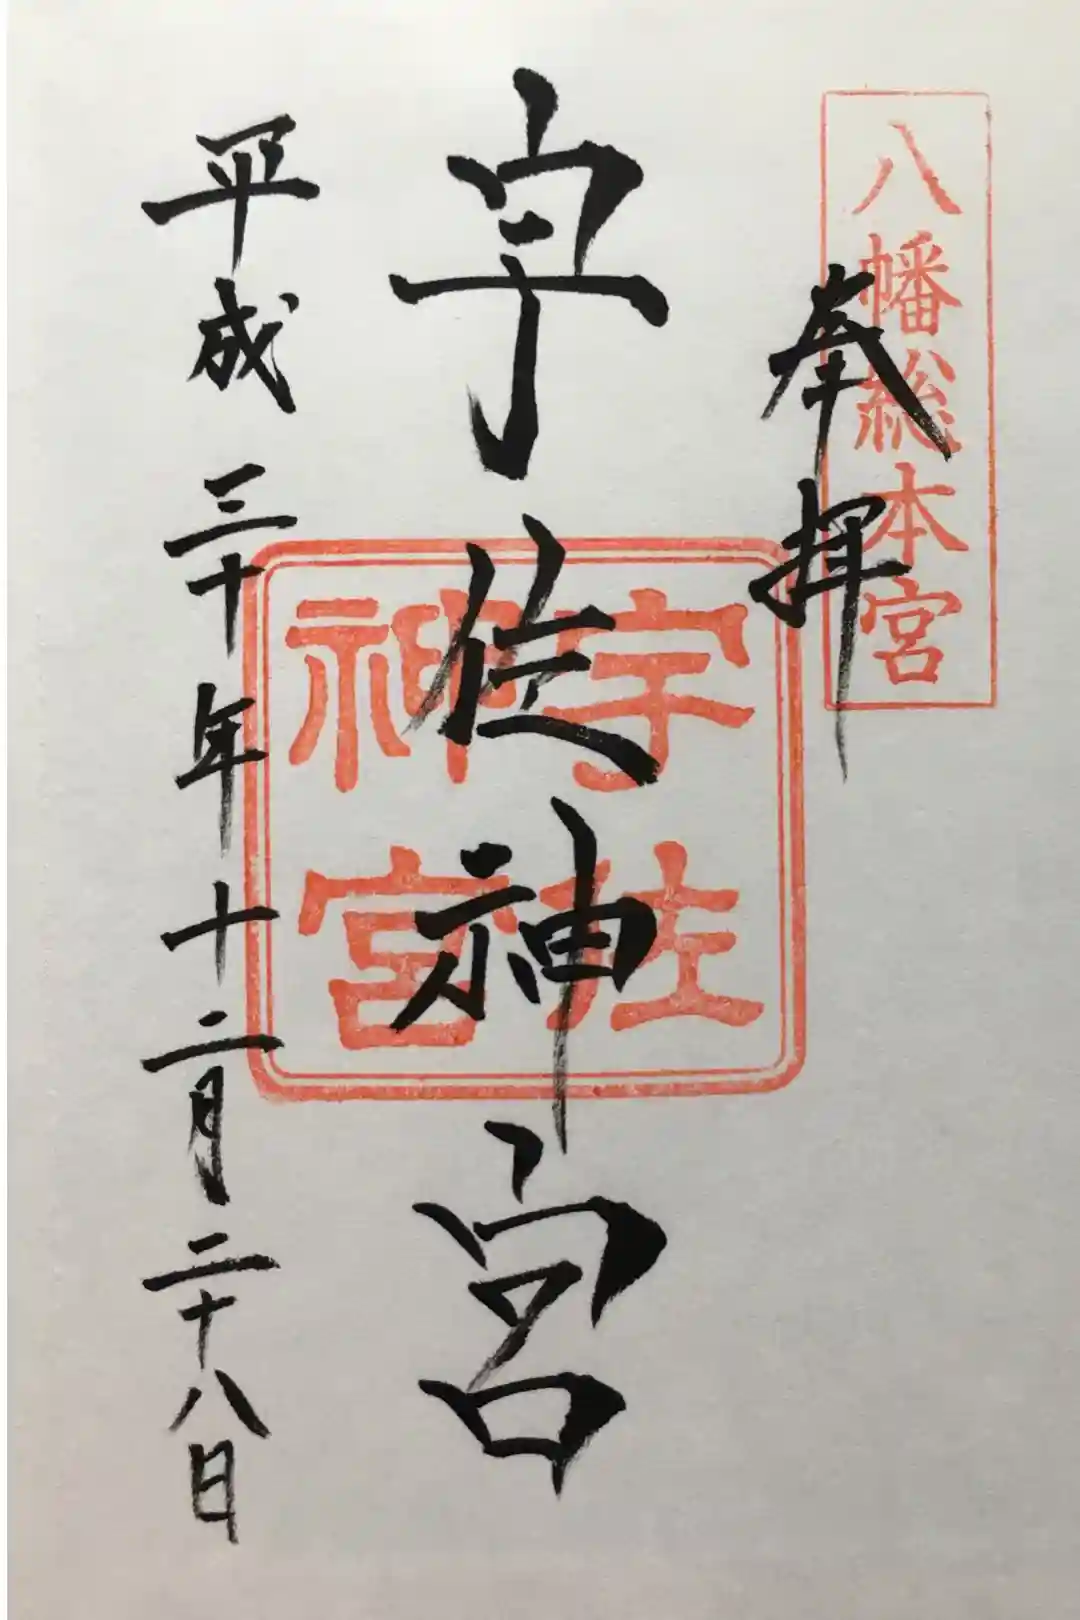 八幡総本宮
奉拝
宇佐神宮
宇佐
神宮
平成三十年十二月二十八日